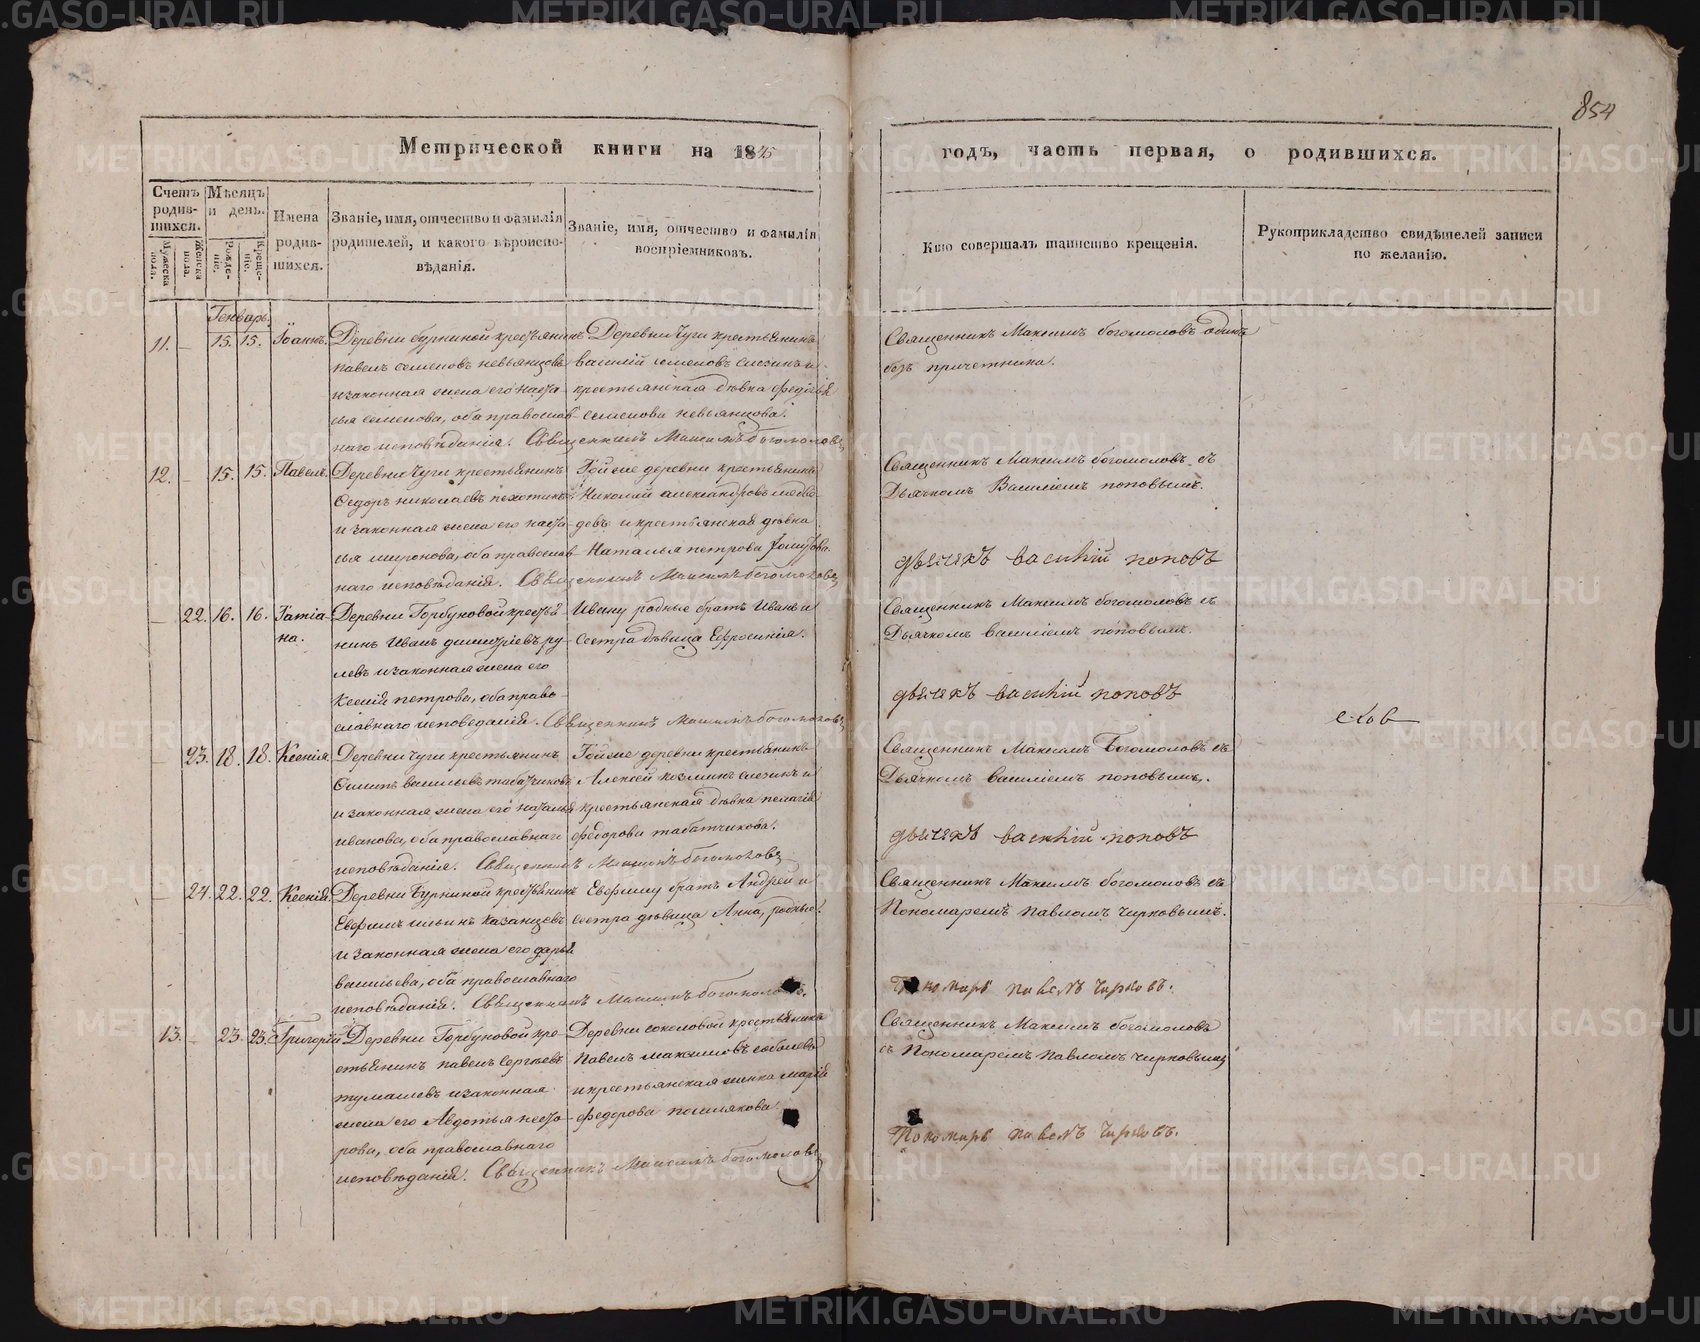 854
Метрической книги на 1845
годъ, часть первая, о родившихся.
Счетъ родив-шихся.
Мужеска пола.
Женска пола.
Мѣсяцъ и день.
Рожде-ніе.
Креще-ніе.
Имена родив-шихся.
Званіе, имя, отчество и фамилія
родителей, и какого вѣроиспо-
вѣданія.
Званіе, имя, отчество и фамилія
воспріемниковъ.
Кто совершалъ таинство крещенія.
Рукоприкладство свидѣтелей записи
по желанію.
Генварь.
11. – 15. 15. Іоаннъ.
Деревни Буркиной крестьянинъ
павелъ семеновъ невьянцовъ
и законная жена его
семенова, оба православ-
наго исповѣданія. Священникъ Максимъ богомоловъ
Деревни Чуги крестьянинъ
василій семеновъ и
крестьянская дѣвка
семенова невьянцова.
Священникъ Максимъ богомоловъ одинъ
безъ причетника.
12. – 15. 15. Павелъ.
Деревни Чуги крестьянинъ
Ѳедоръ николаевъ
и законная жена его наста-
сья миронова, оба православ-
наго исповѣданія. Священникъ Максимъ богомоловъ
Той же деревни крестьянинъ
Николай александровъ медвѣ-
девъ и крестьянская дѣвка
Наталья петрова
Священникъ Максимъ богомоловъ съ
Дьячкомъ Василіемъ поповымъ.
дьячекъ василій поповъ
– 22. 16. 16. Татіа-
на.
Деревни Горбуновой крестья-
нинъ Иванъ димитріевъ ру-
левъ и законная жена его
Ксенія петрова, оба право-
славнаго исповеданія. Священникъ Максимъ богомоловъ
Ивану родные братъ Иванъ и
сестра дѣвица Ефросинія.
Священникъ Максимъ богомоловъ съ
Дьячкомъ василіемъ поповымъ.
дьячекъ василій поповъ
– 23. 18. 18. Ксенія.
Деревни Чуги крестьянинъ
Осипъ васильевъ табатчиковъ
и законная жена его наталья
иванова, оба православнаго
исповѣданія. Священникъ Максимъ богомоловъ
Той же деревни крестьянинъ
Алексѣй козминъ и
крестьянская дѣвка пелагія
федорова табатчикова.
Священникъ Максимъ Богомоловъ съ
Дьячкомъ василіемъ поповымъ.
дьячекъ василій поповъ
– 24. 22. 22. Ксенія.
Деревни Буркиной крестьянинъ
Евфимъ ильинъ Казанцевъ
и законная жена его дарья
васильева, оба православнаго
исповѣданія. Священникъ Максимъ богомоловъ.
Евфиму братъ Андрей и
сестра дѣвица Анна, родные.
Священникъ Максимъ богомоловъ съ
Пономаремъ павломъ чирковымъ.
Пономарь павелъ чирковъ.
13. – 23. 23. Григорій.
Деревни Горбуновой кре-
стьянинъ павелъ сергѣевъ
тумашевъ и законная
жена его Авдотья несто-
рова, оба православнаго
исповѣданія. Священникъ Максимъ богомоловъ
Деревни соколовой крестьянинъ
Павелъ максимовъ соболевъ
и крестьянская женка марія
федорова
Священникъ Максимъ богомоловъ
съ Пономаремъ павломъ чирковымъ
Пономарь павелъ чирковъ.